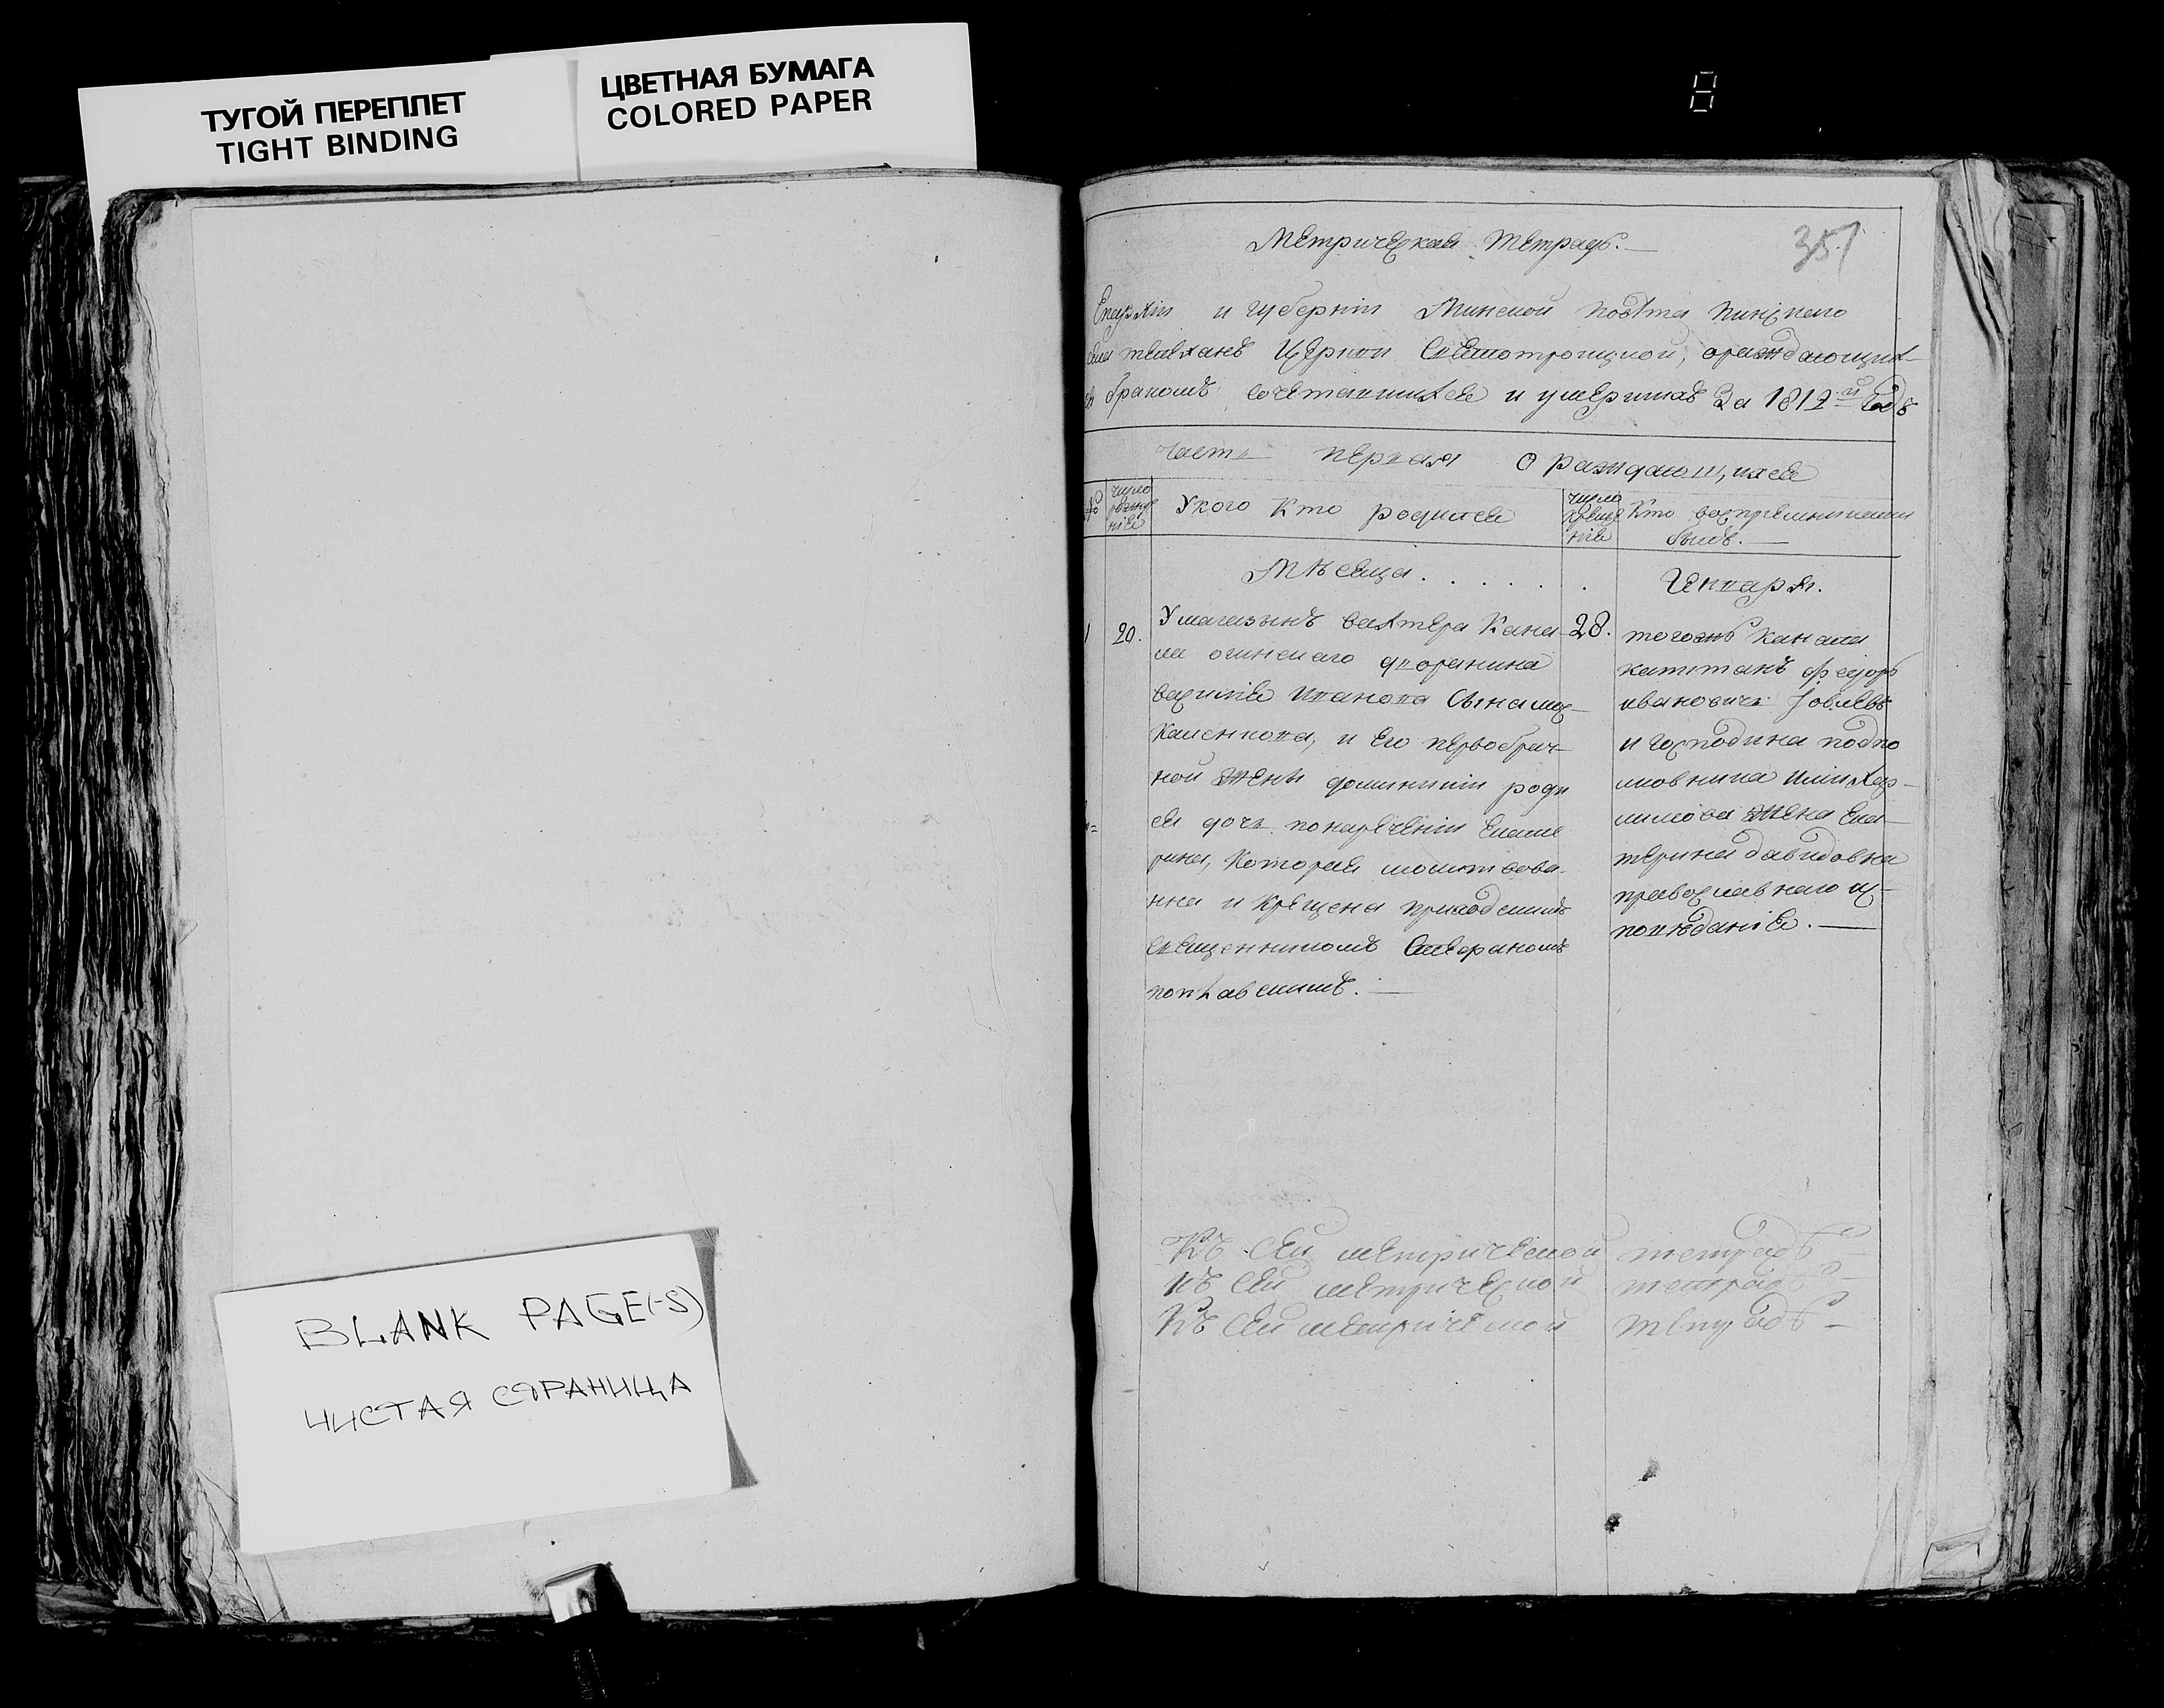 ТУГОЙ ПЕРЕПЛЕТ
TIGHT BINDING
ЦВЕТНАЯ БУМАГА
COLORED PAPER
8
BLANK PAGE(-S)
ЧИСТАЯ СТРАНИЦА
Метрическая Тетрадь.
351
Епархіи и губерніи Минской повѣта пинскаго
телехань Церкви Святотроицкой, ораждающих
бракомъ сочетавшихся и умершихъ За 1812й Годъ
Часть первая О раждающихся
№
число рожде нія
Укого Кто родился
число креще нія
Кто воспреемникомъ
былъ.
Мѣсяца . . . . . .
Генваря.
1 20.
Умагазынъ вахтера Кана
ла огинскаго дворанина
василія Иванова Сына мос
каленкова, и Его первобрач
ной жены доминикіи роди
ся дочь понаречении Екате
рина, Которая молитвова
нна и Крещена приходскимъ
священникомъ
28.
тогожъ канала
капитанъ федоръ
ивановичь
и господина подпо
лковника
жена Ека
терина давидовна
православнаго ис
повѣданія.
Къ сей метрической тетрадѣ
Къ сей метрической тетрадѣ
Къ сей метрической тетрадѣ